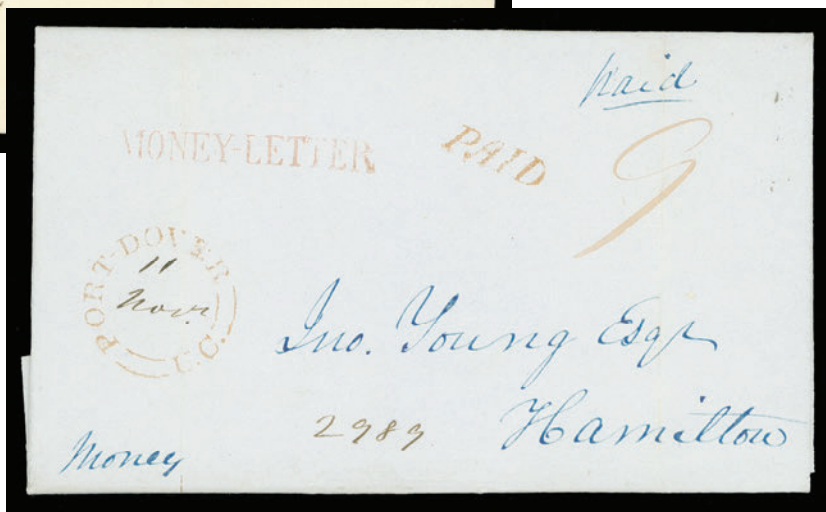 Paid
MONEY-LETTER
PAID
9
PORT-DOVER
11
Novr.
U.C.
Jno. Young Esqr
Hamilton
2989
Money